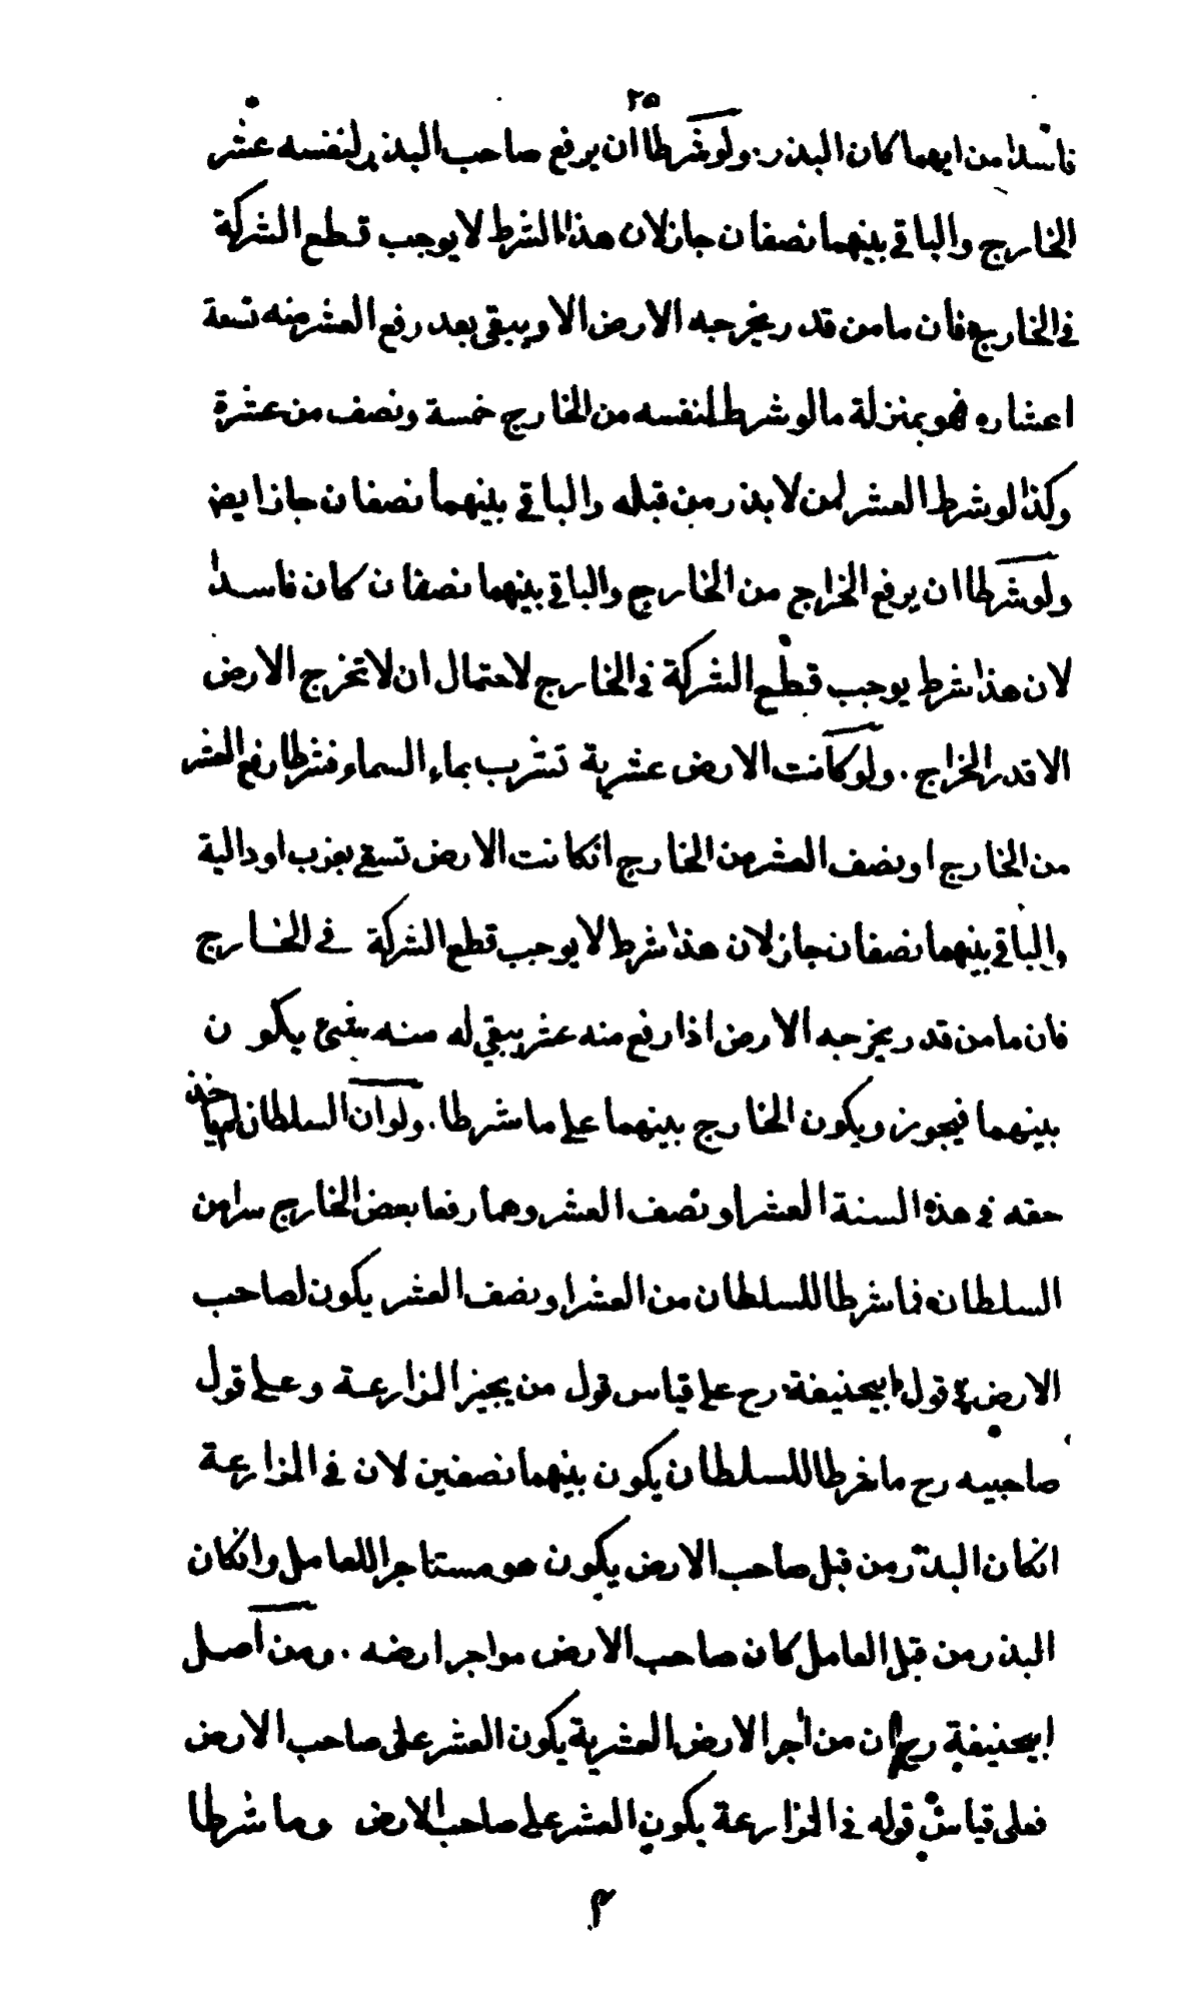 ٢٥
فاسدا من ايهما كان البذر. ولو شرطا ان يرفع صاحب البذر لنفسه عشر
الخارج والباقي بينهما نصفان جاز لان هذا الشرط لا يوجب قطع الشركة
في الخارج فان ما من قدر يخرجه الارض الا ويبقى بعد رفع العشر منه تسعة
اعشاره فهو بمنزلة ما لو شرط لنفسه من الخارج خمسة ونصف من عشرة
وكذا لو شرط العشر لمن لا بذر من قبله والباقي بينهما نصفان جاز ايض
ولو شرطا ان يرفع الخراج من الخارج والباقي بينهما نصفان كان فاسدا
لان هذا شرط يوجب قطع الشركة في الخارج لاحتمال ان لا تخرج الارض
الا قدر الخراج. ولو كانت الارض عشرية تشرب بماء السماء فشرطا رفع العشر
من الخارج او نصف العشر من الخارج انكانت الارض تسقى بغرب او دالية
والباقي بينهما نصفان جاز لان هذا شرط لا يوجب قطع الشركة في الخارج
فان ما من قدر يخرجه الارض اذا رفع منه عشر يبقي له منه شيء يكون
بينهما فيجوز ويكون الخارج بينهما على ما شرطا. ولو ان السلطان لم ياخذ
حقه في هذه السنة العشر او نصف العشر وهما رفعا بعض الخارج سرا من
السلطان فما شرطا للسلطان من العشر او نصف العشر يكون لصاحب
الارض في قول ابيحنيفة رح على قياس قول من يجيز المزارعة وعلى قول
صاحبيه رح ما شرطا للسلطان يكون بينهما نصفين لان في المزارعة
انكان البذر من قبل صاحب الارض يكون هو مستاجرا للعامل وانكان
البذر من قبل العامل كان صاحب الارض مواجرا ارضه. ومن اصل
ابيحنيفة رح ان من أجر الارض العشرية يكون العشر على صاحب الارض
فعلى قياس قوله في المزارعة يكون العشر على صاحب الارض وما شرطا